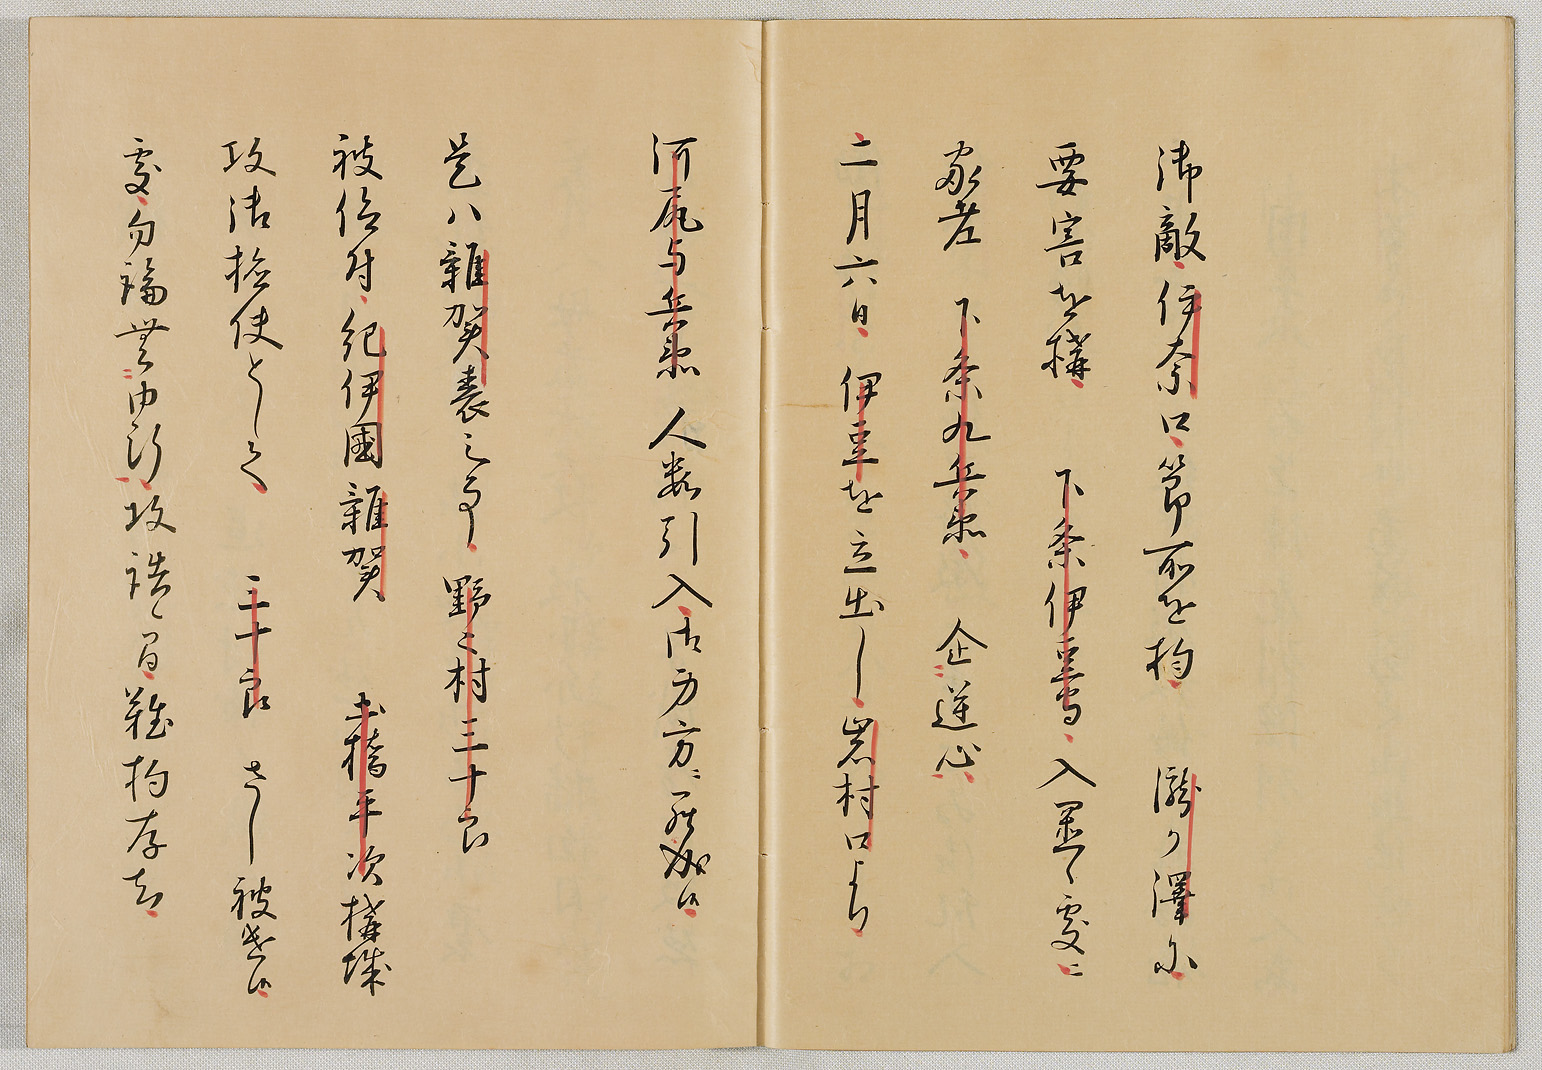 御敵伊奈口節所を拘　瀧ヶ澤尓
要害を構　下条伊豆守入置く處ニ
家老　下条九兵衛　企逆心
二月六日　伊豆を立出し岩村口より
河尻与兵衛　人数引入御身方ニ罷成候
是ハ雜賀表之事　野々村三十郎
被仰付紀伊國雜賀　土橋平次構城
攻御検使として　三十郎　さし被遣候
處勿論無由断攻詰候間難拘存知